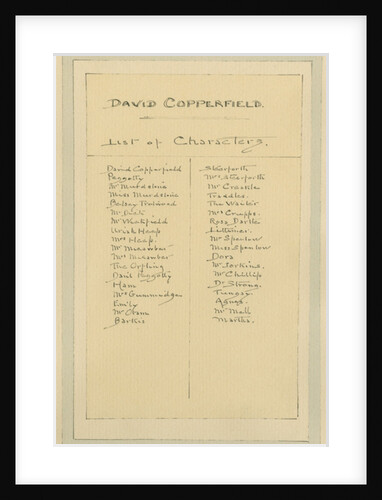 DAVID COPPERFIELD.
List of Characters.
David Copperfield
Peggotty
Mr Murdstone
Miss Murdstone
Betsey Trotwood
Mr Dick
Mr Wickfield
Uriah Heep
Mrs Heep.
Mr Micawber
Mrs Micawber
The Orfling
Daniel Peggotty
Ham
Mrs Gummidge
Emily
Mr Omer
Barkis
Steerforth
Mrs Steerforth
Mr Creakle
Traddles.
The Waiter
Mrs Crupps.
Rosa Dartle
Littimer.
Mr Spenlow
Miss Spenlow
Dora
Mr Jorkins.
Mr Chillip
Dr Strong.
Tungay
Agnes.
Mr Mell
Martha.